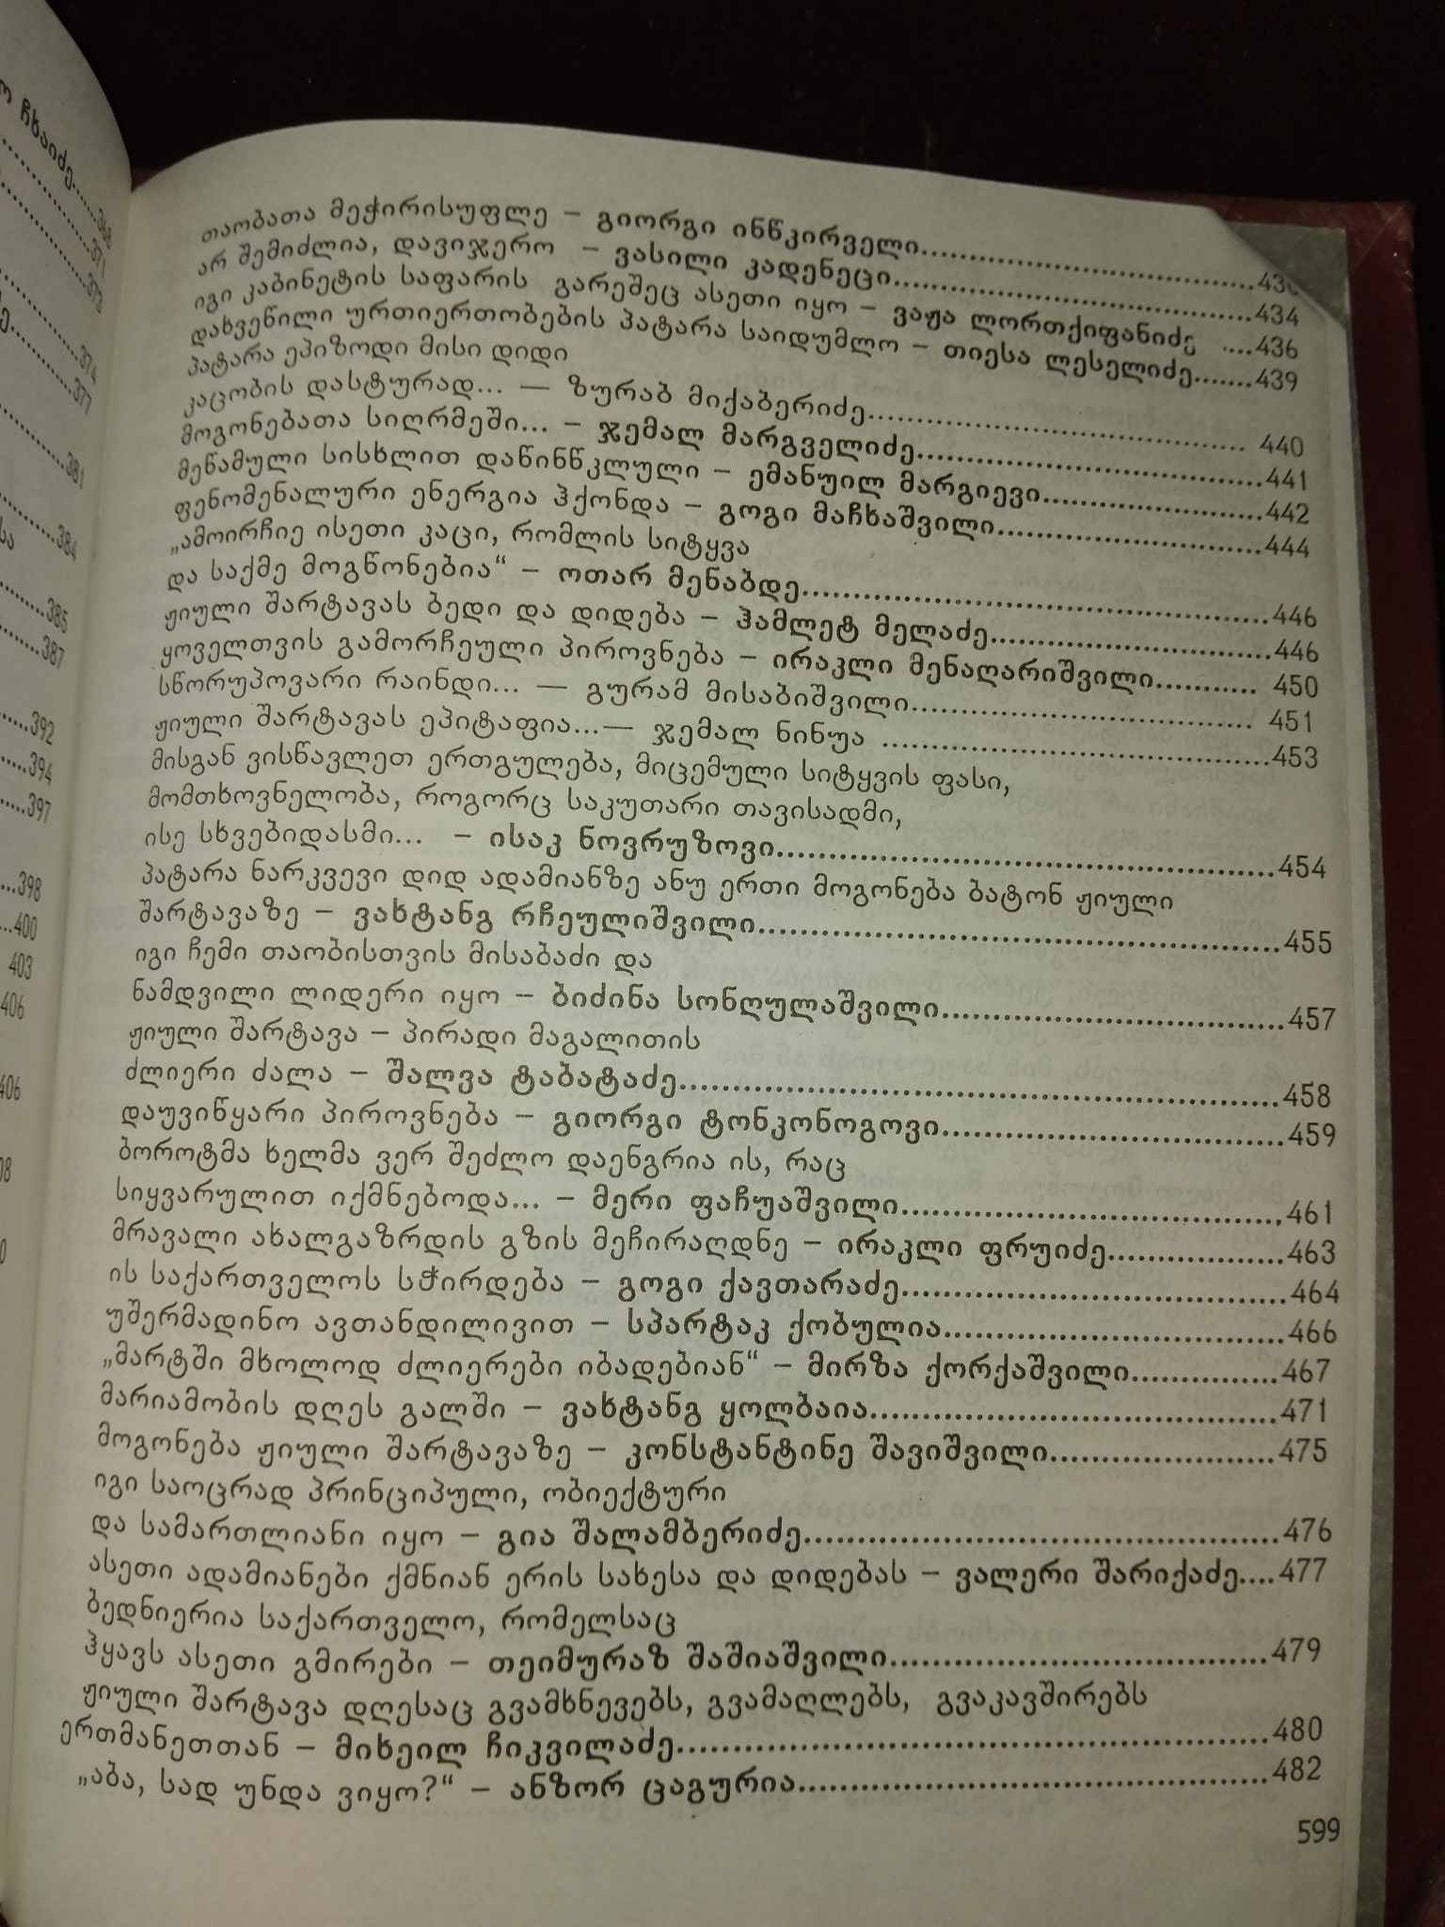 ო ჩხაიძე......368
371
373
374
377
381
384
385
387
392
394
397
398
400
403
406
406
თაობათა მეჭირისუფლე – გიორგი ინწკირველი
არ შემიძლია, დავიჯერო – ვასილი კადენეცი....434
იგი კაბინეტის საფარის გარეშეც ასეთი იყო – ვაჟა ლორთქიფანიძე ....436
დახვეწილი ურთიერთობების პატარა საიდუმლო – თიესა ლესელიძე.......439
პატარა ეპიზოდი მისი დიდი
კაცობის დასტურად... — ზურაბ მიქაბერიძე.... 440
მოგონებათა სიღრმეში... – ჯემალ მარგველიძე....441
მეწამული სისხლით დაწინწკლული – ემანუილ მარგიევი....442
ფენომენალური ენერგია ჰქონდა – გოგი მაჩხაშვილი....444
„ამოირჩიე ისეთი კაცი, რომლის სიტყვა
და საქმე მოგწონებია“ – ოთარ მენაბდე....446
ჟიული შარტავას ბედი და დიდება – ჰამლეტ მელაძე....446
ყოველთვის გამორჩეული პიროვნება – ირაკლი მენაღარიშვილი........... 450
სწორუპოვარი რაინდი... — გურამ მისაბიშვილი.... 451
ჟიული შარტავას ეპიტაფია...— ჯემალ ნინუა ....453
მისგან ვისწავლეთ ერთგულება, მიცემული სიტყვის ფასი,
მომთხოვნელობა, როგორც საკუთარი თავისადმი,
ისე სხვებიდასმი... – ისაკ ნოვრუზოვი....454
პატარა ნარკვევი დიდ ადამიანზე ანუ ერთი მოგონება ბატონ ჟიული
შარტავაზე – ვახტანგ რჩეულიშვილი....455
იგი ჩემი თაობისთვის მისაბაძი და
ნამდვილი ლიდერი იყო – ბიძინა სონღულაშვილი....457
ჟიული შარტავა – პირადი მაგალითის
ძლიერი ძალა – შალვა ტაბატაძე....458
დაუვიწყარი პიროვნება – გიორგი ტონკონოგოვი....459
ბოროტმა ხელმა ვერ შეძლო დაენგრია ის, რაც
სიყვარულით იქმნებოდა... – მერი ფაჩუაშვილი....461
მრავალი ახალგაზრდის გზის მეჩირაღდნე – ირაკლი ფრუიძე....463
ის საქართველოს სჭირდება – გოგი ქავთარაძე....464
უშერმადინო ავთანდილივით – სპარტაკ ქობულია....466
„მარტში მხოლოდ ძლიერები იბადებიან“ – მირზა ქორქაშვილი....467
მარიამობის დღეს გალში – ვახტანგ ყოლბაია....471
მოგონება ჟიული შარტავაზე – კონსტანტინე შავიშვილი....475
იგი საოცრად პრინციპული, ობიექტური
და სამართლიანი იყო – გია შალამბერიძე....476
ასეთი ადამიანები ქმნიან ერის სახესა და დიდებას – ვალერი შარიქაძე....477
ბედნიერია საქართველო, რომელსაც
ჰყავს ასეთი გმირები – თეიმურაზ შაშიაშვილი....479
ჟიული შარტავა დღესაც გვამხნევებს, გვამაღლებს, გვაკავშირებს
ერთმანეთთან – მიხეილ ჩიკვილაძე....480
„აბა, სად უნდა ვიყო?“ – ანზორ ცაგურია....482
599